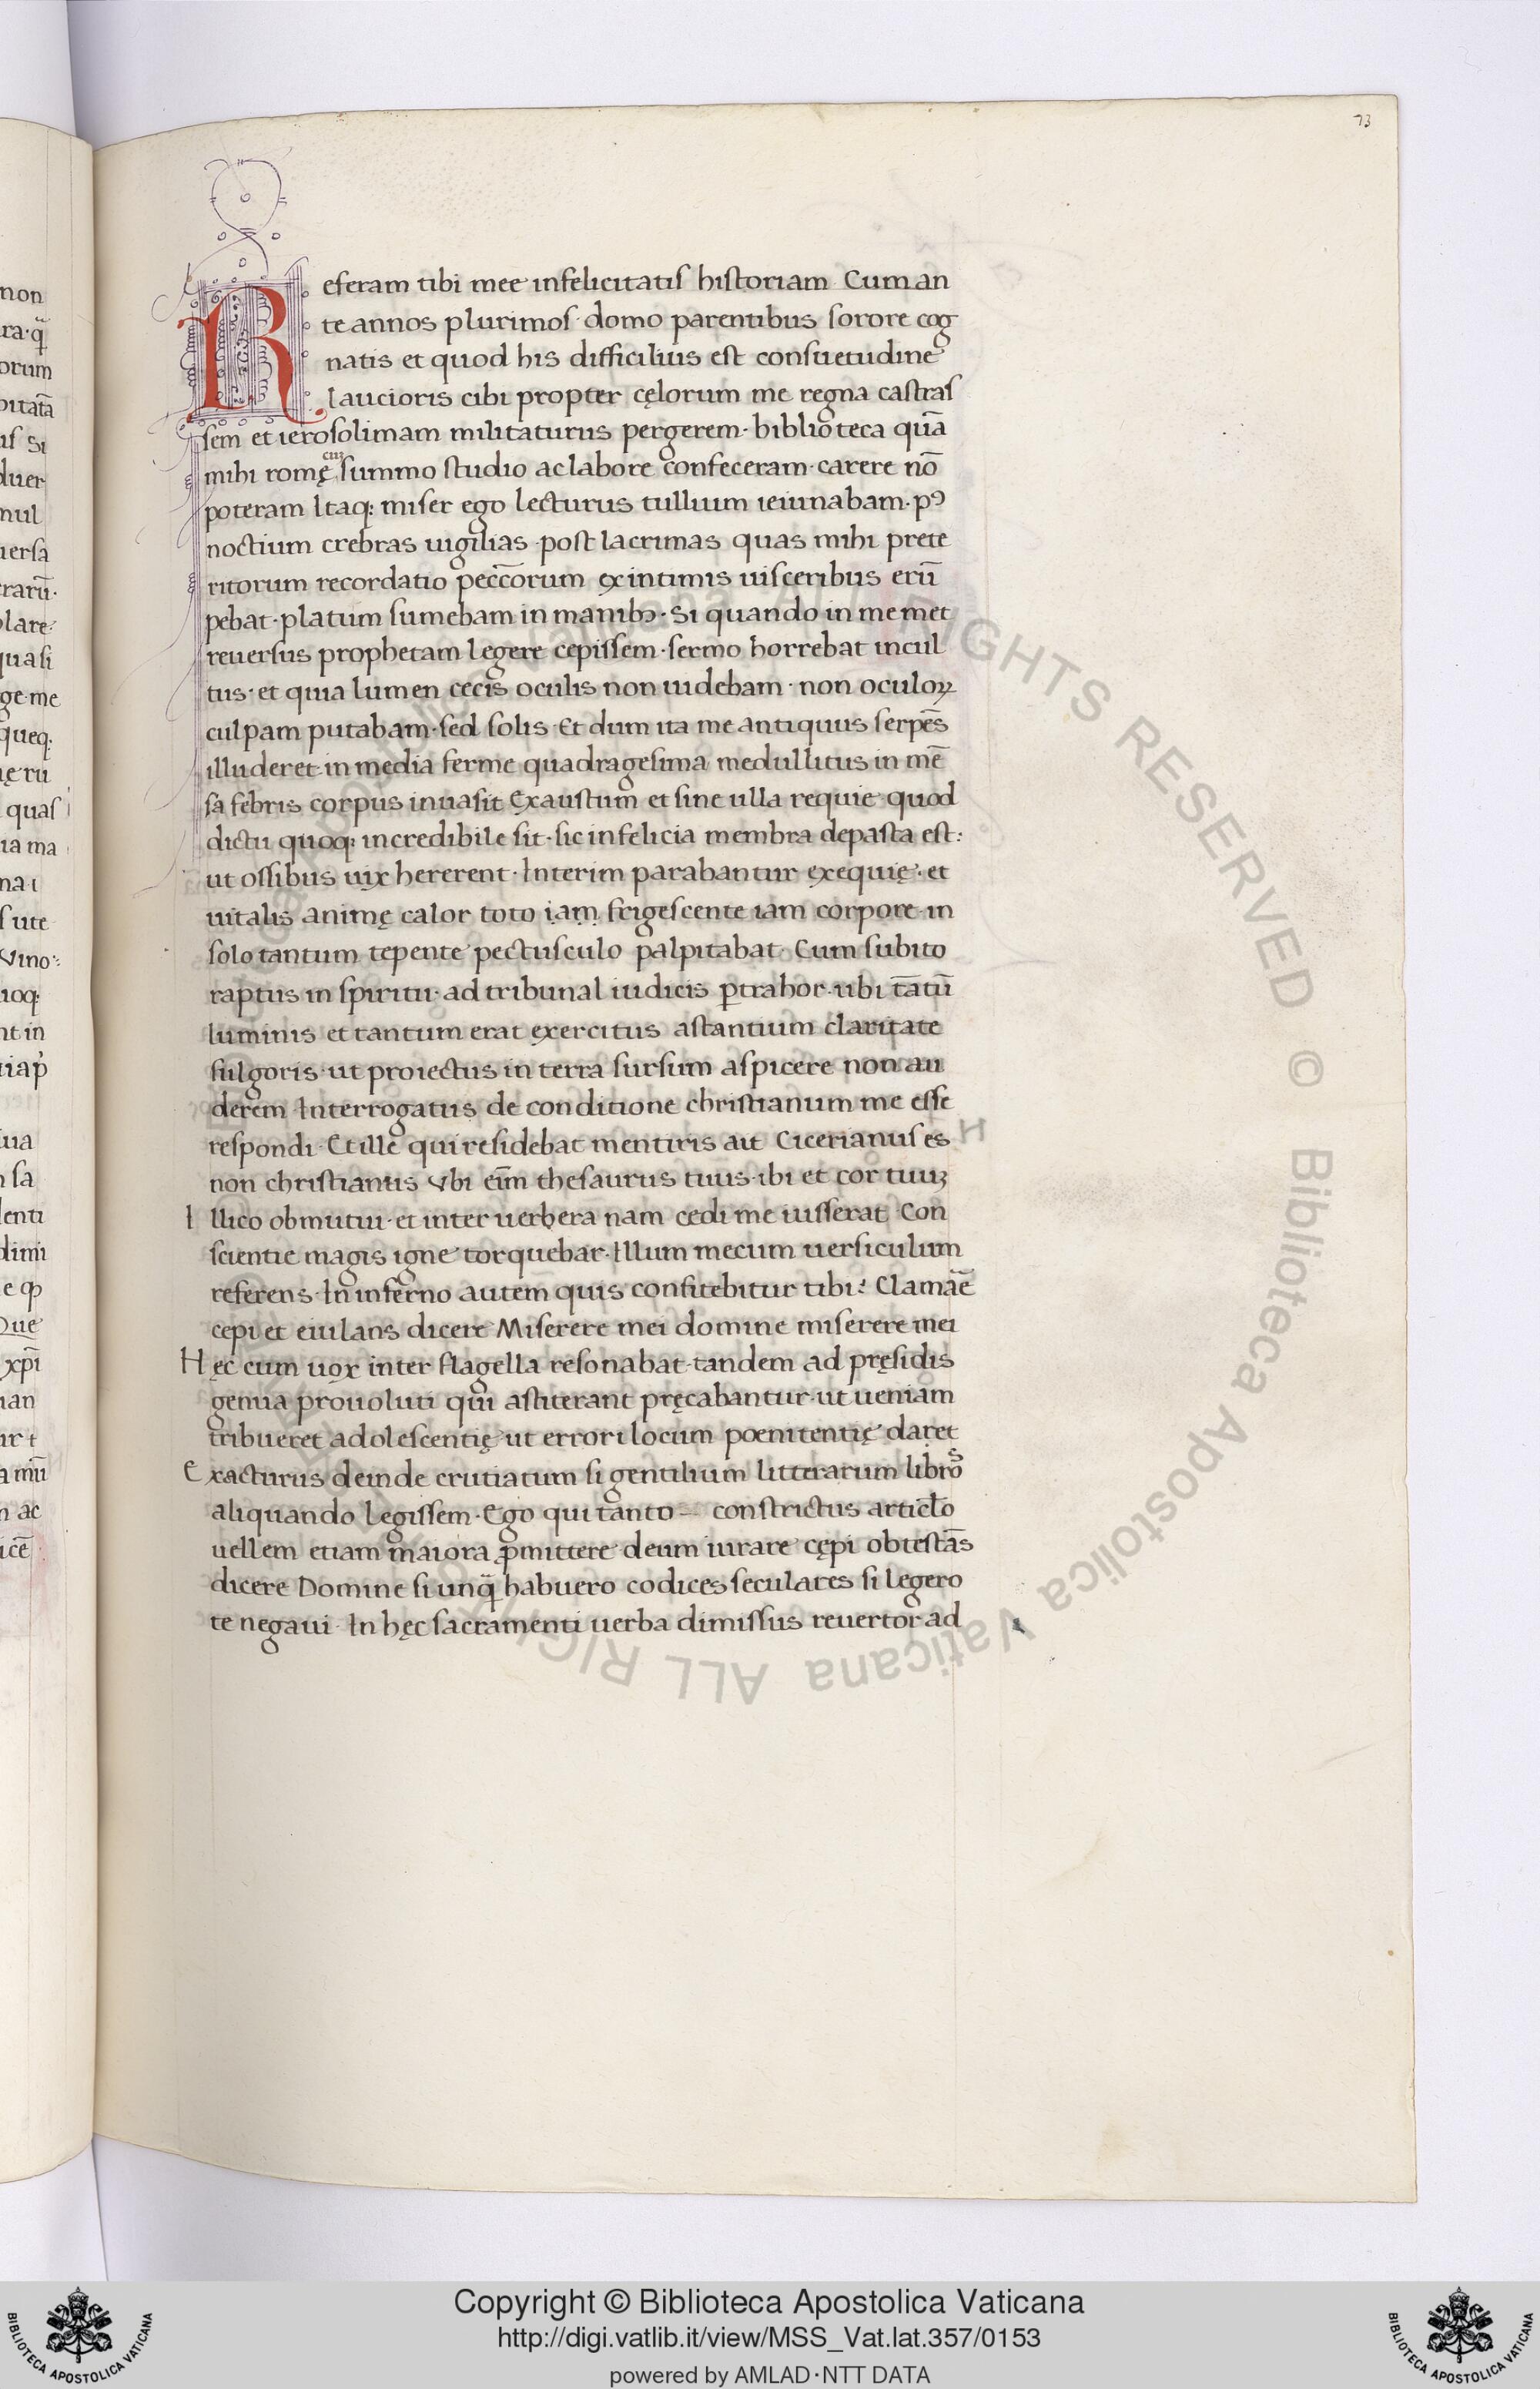 73
Referam tibi mee infelicitatis historiam Cum an
te annos plurimos· domo parentibus sorore cog
natis et quod his difficilius est consuetudine
laucioris cibi propter cęlorum me regna castras
sem et ierosolimam militaturus pergerem· biblioteca quā
cū
mihi romę summo studio ac labore confeceram· carere nō
poteram Itaq: miser ego lecturus tullium ieiunabam· pꝰ
noctium crebras uigilias· post lacrimas quas mihi prete
ritorum recordatio pecc̄orum ex intimis uisceribus erū
pebat· platum sumebam in manibꝰ· Si quando in me met
reuersus prophetam legere cepissem· sermo horrebat incul
tus· et quia lumen cecis oculis non uidebam· non oculoꝝ
culpam putabam· sed solis· Et dum ita me antiquus serpēs
illuderet· in media ferme quadragesima medullitus in mē
sa febris corpus inuasit Exaustum et sine ulla requie· quod
dictu quoq: incredibile sit· sic infelicia membra depasta est:
ut ossibus uix hererent· Interim parabantur exequię· et
uitalis animę calor toto iam frigescente iam corpore· in
solo tantum tepente pectusculo palpitabat· Cum subito
raptus in spiritu· ad tribunal iudicis ꝑtrahor· ubi tātū
luminis et tantum erat exercitus astantium claritate
fulgoris· ut proiectus in terra sursum aspicere non au
derem Interrogatus de conditione christianum me esse
respondi· Et ille qui residebat mentiris ait Cicerianus es
non christianus Vbi eīm thesaurus tuus· ibi et cor tuuꝫ
Illico obmutui· et inter uerbera nam cedi me iusserat Con
scientie magis igne torquebar· Illum mecum uersiculum
referens· In inferno autem quis confitebitur tibi? Clamāe
cepi et eiulans dicere Miserere mei domine miserere mei
Hęc cum uox inter flagella resonabat· tandem ad pręsidis
genua prouoluti qui astiterant pręcabantur· ut ueniam
tribueret adolescentię ut errori locum poenitentię daret
Exacturus deinde crutiatum si gentilium litterarum libros
aliquando legissem· Ego qui tanto constrictus articl̄o
uellem etiam maiora ꝓmittere deum iurare cępi obtestās
dicere Domine si unq̄ habuero codices seculares si legero
te negaui· In hęc sacramenti uerba dimissus reuertor ad
ALL RIGHTS RESERVED © Biblioteca Apostolica Vaticana
Copyright © Biblioteca Apostolica Vaticana
http://digi.vatlib.it/view/MSS_Vat.lat.357/0153
powered by AMLAD·NTT DATA
BIBLIOTECA APOSTOLICA VATICANA
BIBLIOTECA APOSTOLICA VATICANA